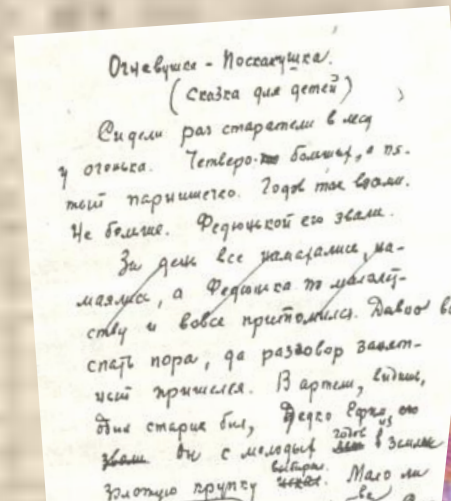 Огневушка - Поскакушка.
(Сказка для детей)
Сидели раз старатели в лесу
у огонька. Четверо больших, а пя-
тый парнишечко. Годов так восьми.
Не больше. Федюнькой его звали.
За день все намаялись, на-
маялись, а Федюнька по малолет-
ству и вовсе притомился. Давно
спать пора, да разговор занят-
ный пришелся. В артели, видишь,
один старик был, Дедко Ефим, его
звали Он с молодых годов из земли
золотую крупку выбирал. Мало ли